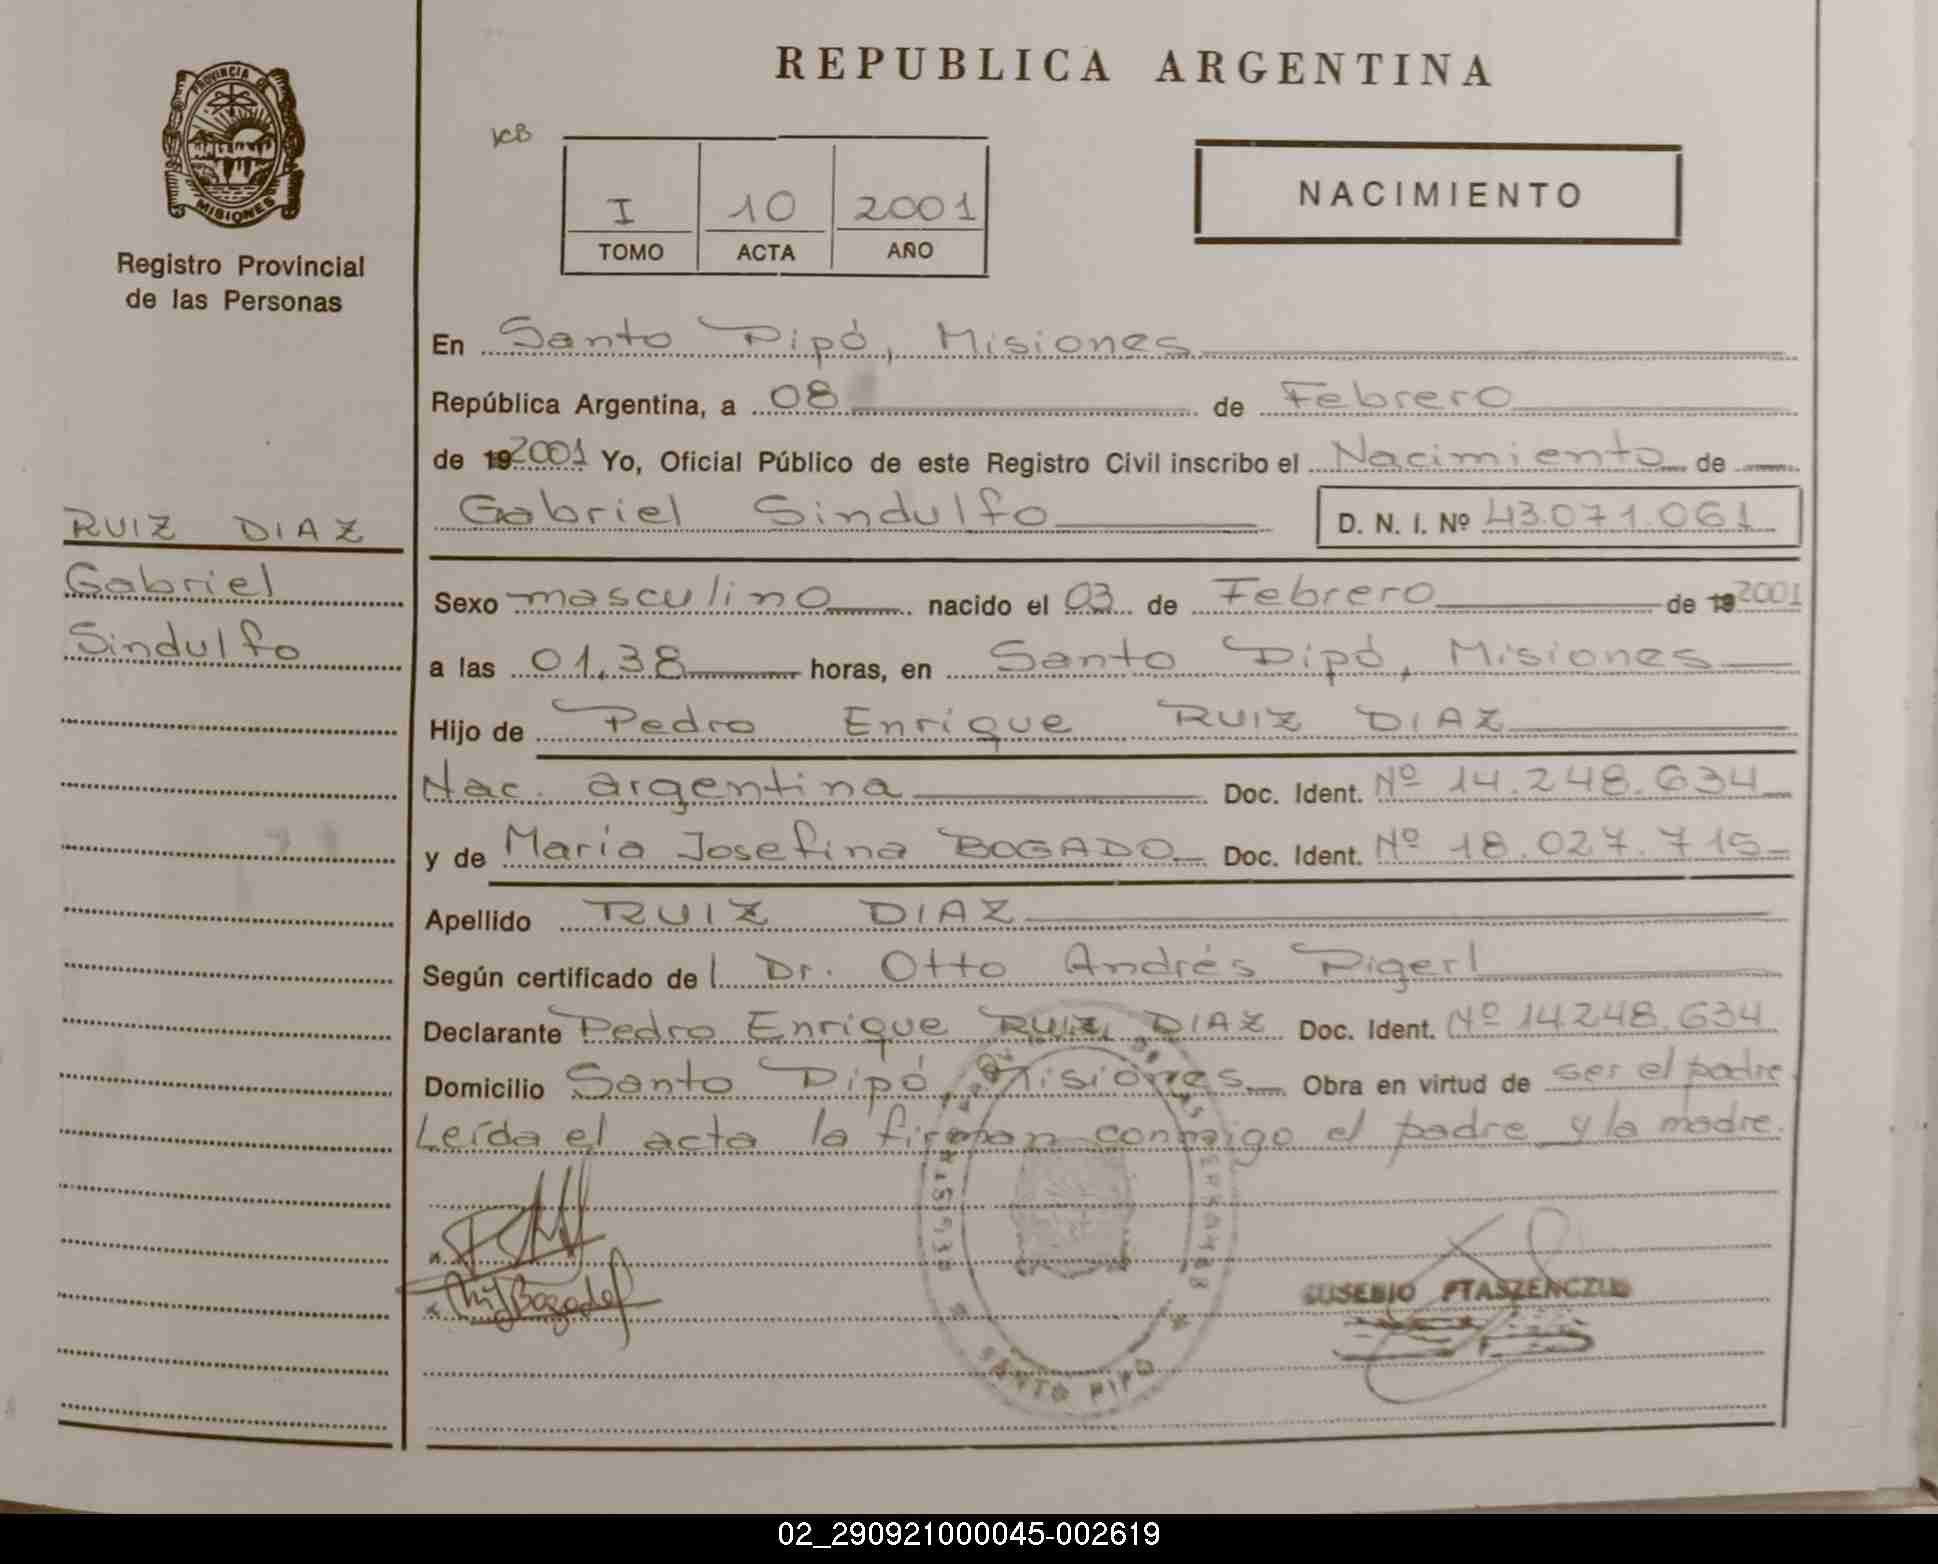 REPUBLICA ARGENTINA
PROVINCIA DE
MISIONES
Registro Provincial
de las Personas
KB
I 10 2001
TOMO ACTA AÑO
NACIMIENTO
En Santo Pipó, Misiones
República Argentina, a 08 de Febrero
de 19 2001 Yo, Oficial Público de este Registro Civil inscribo el Nacimiento de
Gabriel Sindulfo D. N. I. Nº 43.071.061
RUIZ DIAZ
Gabriel
Sindulfo
Sexo masculino nacido el 03 de Febrero de 19 2001
a las 01,38 horas, en Santo Pipó, Misiones
Hijo de Pedro Enrique RUIZ DIAZ
Nac. argentina Doc. Ident. Nº 14.248.634
y de María Josefina BOGADO Doc. Ident. Nº 18.027.715
Apellido RUIZ DIAZ
Según certificado de l Dr. Otto Andrés Pigerl
Declarante Pedro Enrique RUIZ DIAZ Doc. Ident. Nº 14248.634
Domicilio Santo Pipó, Misiones Obra en virtud de ser el padre.
Leída el acta la firman conmigo el padre y la madre.
Bogado
EUSEBIO PTASZENCZUK
SANTO PIPO
02_290921000045-002619